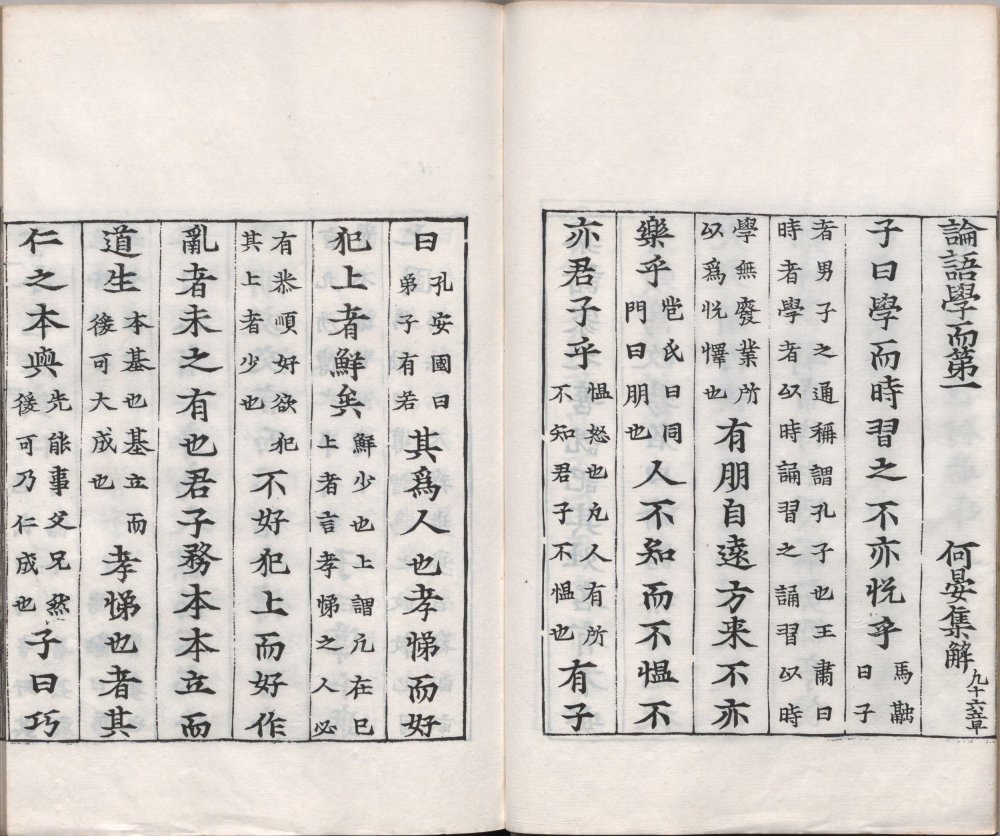 論語學而第一　何晏集解 九十六章
子曰學而時習之不亦悅乎 馬融
曰子
者男子之通稱謂孔子也王肅曰
時者學者以時誦習之誦習以時
學無廢業所
以爲悅懌也
有朋自遠方来不亦
樂乎 苞氏曰同
門曰朋也
人不知而不慍不
亦君子乎 慍怒也凢人有所
不知君子不慍也
有子
曰 孔安國曰
弟子有若
其爲人也孝悌而好
犯上者鮮矣 鮮少也上謂凢在己
上者言孝悌之人必
有恭順好欲犯
其上者少也
不好犯上而好作
亂者未之有也君子務本本立而
道生 本基也基立而
後可大成也
孝悌也者其
仁之本與 先能事父兄然
後可乃仁成也
子曰巧